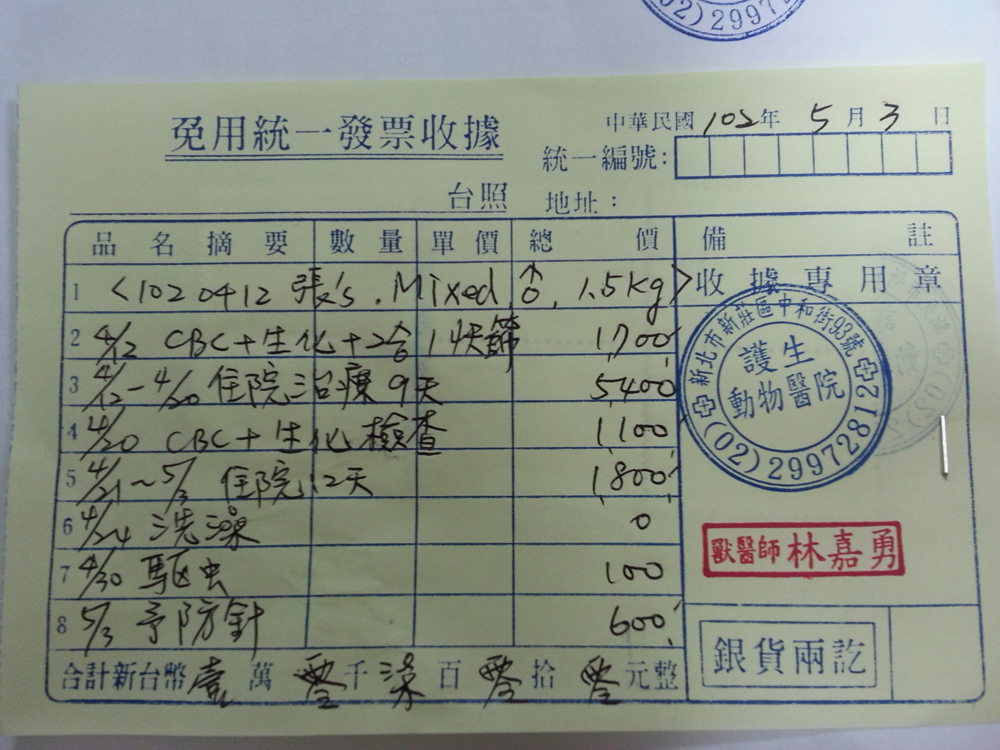 02)2997
免用統一發票收據
中華民國102年5月3日
統一編號:
台照 地址:
品名摘要 數量 單價 總價 備註
1 <1020412 張's. Mixed, ♂, 1.5kg> 收據專用章
2 4/12 CBC+生化+2合1快篩 1,700
3 4/12-4/20 住院治療9天 5,400
4 4/20 CBC+生化檢查 1,100
5 4/21~5/3 住院12天 1,800
6 4/24 洗澡 0
7 4/30 驅虫 100
8 5/3 予防針 600
合計新台幣壹萬零千柒百零拾零元整
新北市新莊區中和街93號
護生
動物醫院
(02)29972812
獸醫師林嘉勇
銀貨兩訖